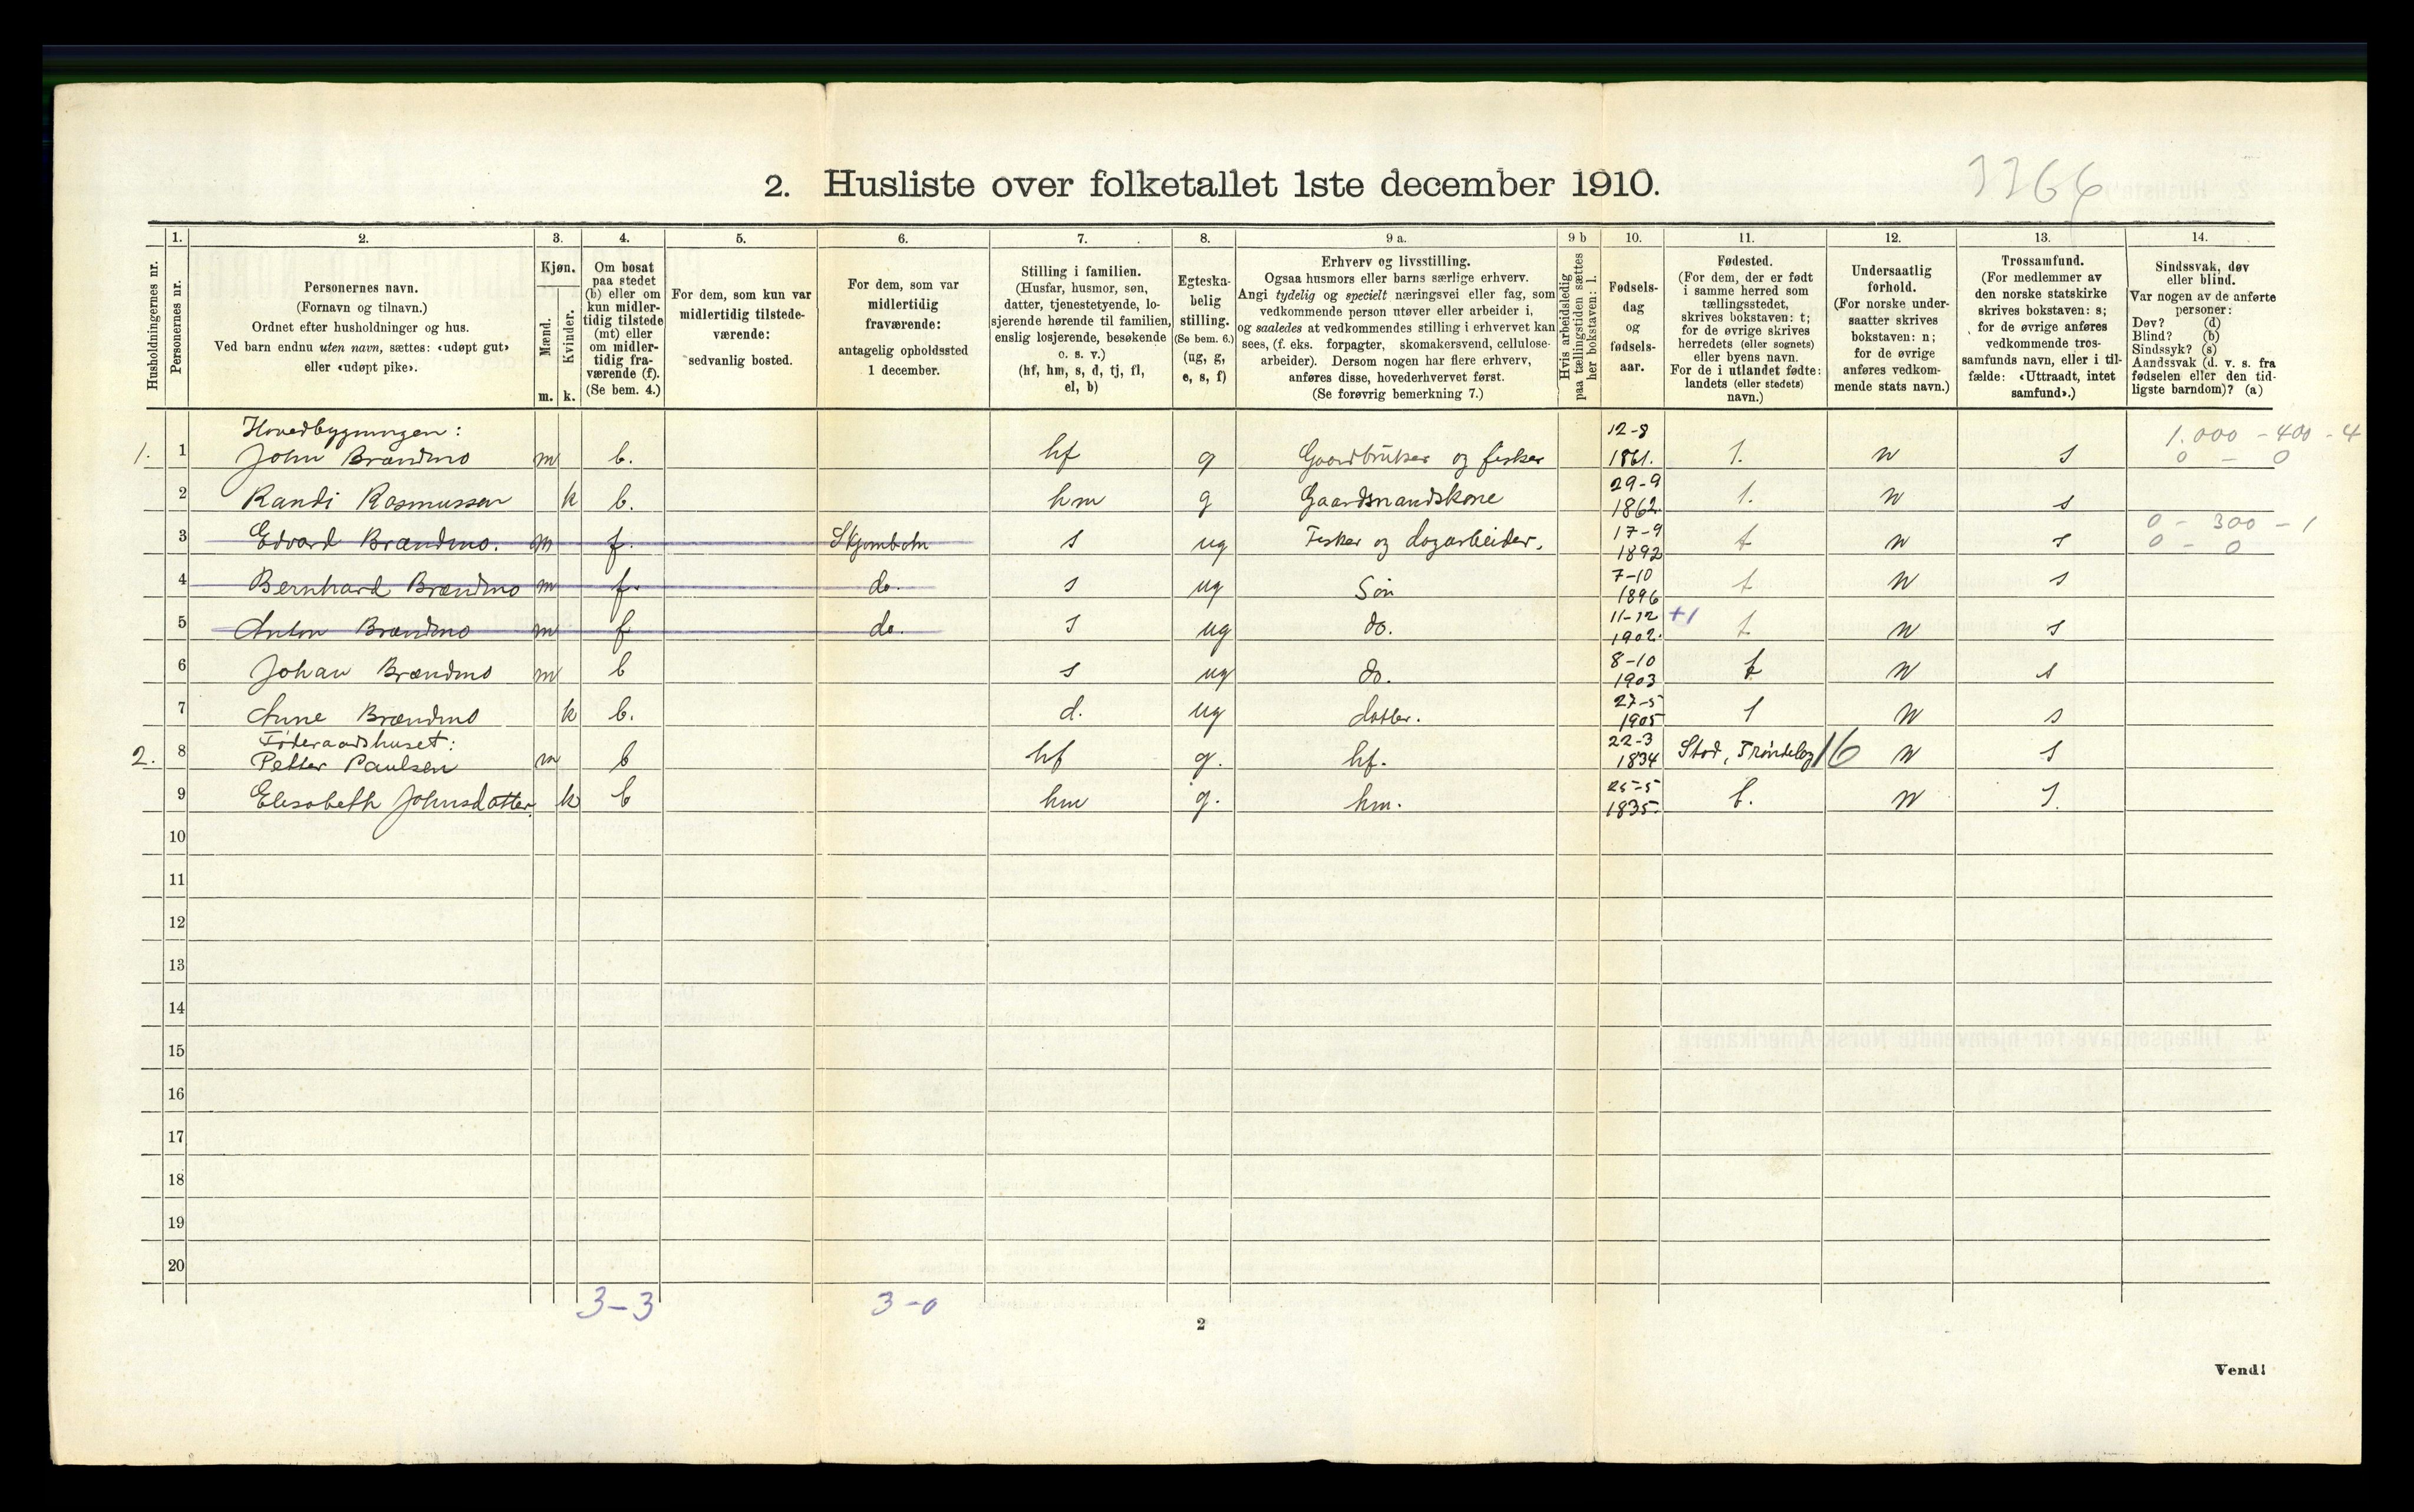 2. Husliste over folketallet 1ste december 1910.
3366
Husholdningernes nr.
1.
Personernes nr.
2.
Personernes navn.
(Fornavn og tilnavn.)
Ordnet efter husholdninger og hus.
Ved barn endnu uten navn, sættes: «udøpt gut»
eller «udøpt pike».
3.
Kjøn.
Mænd.
Kvinder.
m. k.
4.
Om bosat
paa stedet
(b) eller om
kun midler-
tidig tilstede
(mt) eller
om midler-
tidig fra-
værende (f).
(Se bem. 4.)
5.
For dem, som kun var
midlertidig tilstede-
værende:
sedvanlig bosted.
6.
For dem, som var
midlertidig
fraværende:
antagelig opholdssted
1 december.
7.
Stilling i familien.
(Husfar, husmor, søn,
datter, tjenestetyende, lo-
sjerende hørende til familien,
enslig losjerende, besøkende
o. s. v.)
(hf, hm, s, d, tj, fl,
el, b)
8.
Egteska-
belig
stilling.
(Se bem. 6.)
(ug, g,
e, s, f)
9 a.
Erhverv og livsstilling.
Ogsaa husmors eller barns særlige erhverv.
Angi tydelig og specielt næringsvei eller fag, som
vedkommende person utøver eller arbeider i,
og saaledes at vedkommendes stilling i erhvervet kan
sees, (f. eks. forpagter, skomakersvend, cellulose-
arbeider). Dersom nogen har flere erhverv,
anføres disse, hovederhvervet først.
(Se forøvrig bemerkning 7.)
9 b
Hvis arbeidsledig
paa tællingstiden sættes
her bokstaven: l.
10.
Fødsels-
dag
og
fødsels-
aar.
11.
Fødested.
(For dem, der er født
i samme herred som
tællingsstedet,
skrives bokstaven: t;
for de øvrige skrives
herredets (eller sognets)
eller byens navn.
For de i utlandet fødte:
landets (eller stedets)
navn.)
12.
Undersaatlig
forhold.
(For norske under-
saatter skrives
bokstaven: n;
for de øvrige
anføres vedkom-
mende stats navn.)
13.
Trossamfund.
(For medlemmer av
den norske statskirke
skrives bokstaven: s;
for de øvrige anføres
vedkommende tros-
samfunds navn, eller i til-
fælde: «Uttraadt, intet
samfund».)
14.
Sindssvak, døv
eller blind.
Var nogen av de anførte
personer:
Døv? (d)
Blind? (b)
Sindssyk? (s)
Aandssvak (d. v. s. fra
fødselen eller den tid-
ligste barndom)? (a)
Hovedbygningen:
1. 1 John Brændmo m b. hf g Gaardbruker og fisker 12-8 1861. t. n s 1.000 - 400 - 4
0 - 0
2 Randi Rasmussen k b. hm g Gaardmandskone 29-9 1862 t. n s
3 Edvard Brændmo. m f. Skjombotn s ug Fisker og dagarbeider. 17-9 1892 t n s 0 - 300 - 1
0 - 0
4 Bernhard Brændmo m f. do. s ug Søn 7-10 1896 t n s
5 Anton Brændmo m f do. s ug do. 11-12 1902. +1 t n s
6 Johan Brændmo m b s ug do. 8-10 1903 t n s
7 Anne Brændmo k b. d. ug datter. 27-5 1905 t n s
Føderaadshuset:
2. 8 Petter Paulsen m b hf g. hf. 22-3 1834 Stod, Trøndelag 16 n s
9 Elisabeth Johnsdatter. k b hm g. hm. 25-5 1835. t. n s.
10
11
12
13
14
15
16
17
18
19
20
3-3 3-0
2
Vend!